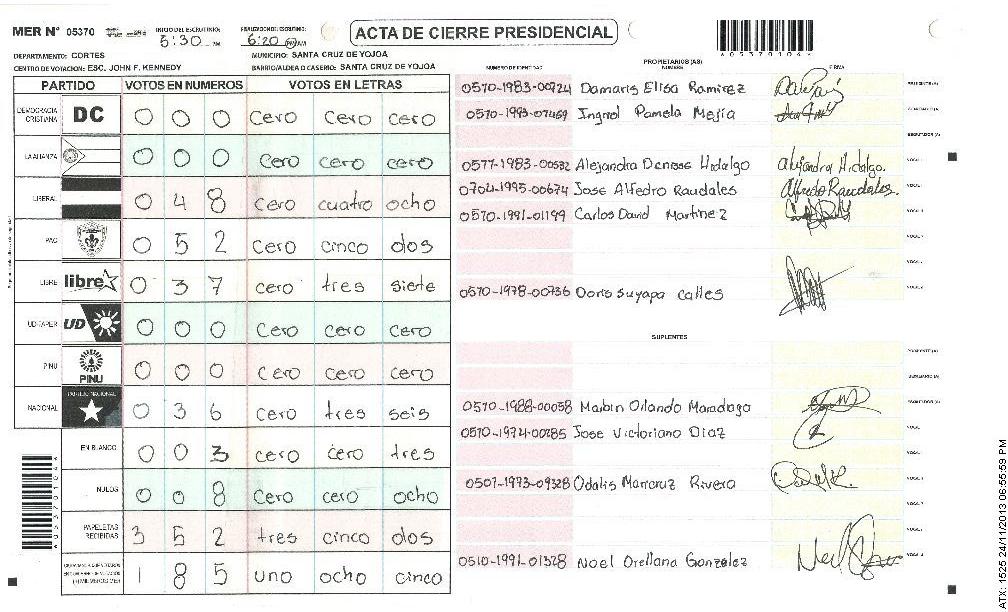 MER Nº 05370 INICIO DEL ESCRUTINIO: 5:30 PM FINALIZACION DEL ESCRUTINIO: 6:20 PM ACTA DE CIERRE PRESIDENCIAL
DEPARTAMENTO: CORTES MUNICIPIO: SANTA CRUZ DE YOJOA
CENTRO DE VOTACION: ESC. JOHN F. KENNEDY BARRIO/ALDEA O CASERIO: SANTA CRUZ DE YOJOA
PARTIDO VOTOS EN NUMEROS VOTOS EN LETRAS
DEMOCRACIA CRISTIANA DC 0 0 0 cero cero cero
LA ALIANZA 0 0 0 cero cero cero
LIBERAL 0 4 8 cero cuatro ocho
PAC 0 5 2 cero cinco dos
LIBRE libre 0 3 7 cero tres siete
UD-FAPER UD 0 0 0 cero cero cero
PINU PINU 0 0 0 cero cero cero
NACIONAL PARTIDO NACIONAL 0 3 6 cero tres seis
EN BLANCO 0 0 3 cero cero tres
NULOS 0 0 8 cero cero ocho
PAPELETAS RECIBIDAS 3 5 2 tres cinco dos
1 8 5 uno ocho cinco
NUMERO DE IDENTIDAD PROPIETARIOS (AS) NOMBRE FIRMA
0570-1983-00724 Damaris Elisa Ramirez
0570-1993-07469 Ingrid Pamela Mejía
0577-1983-00532 Alejandra Denisse Hidalgo Alejandra Hidalgo.
0704-1995-00674 Jose Alfredo Raudales Alfredo Raudales.
0570-1991-01199 Carlos David Martinez
0570-1978-00736 Doris Suyapa Calles
SUPLENTES
0570-1988-00058 Marbin Orlando Maradiaga
0570-1974-00285 Jose Victoriano Diaz
0507-1973-09328 Odalis Marcruz Rivera
0510-1991-01328 Noel Orellana Gonzalez
A053701046
ATX: 1525 24/11/2013 06:55:59 PM